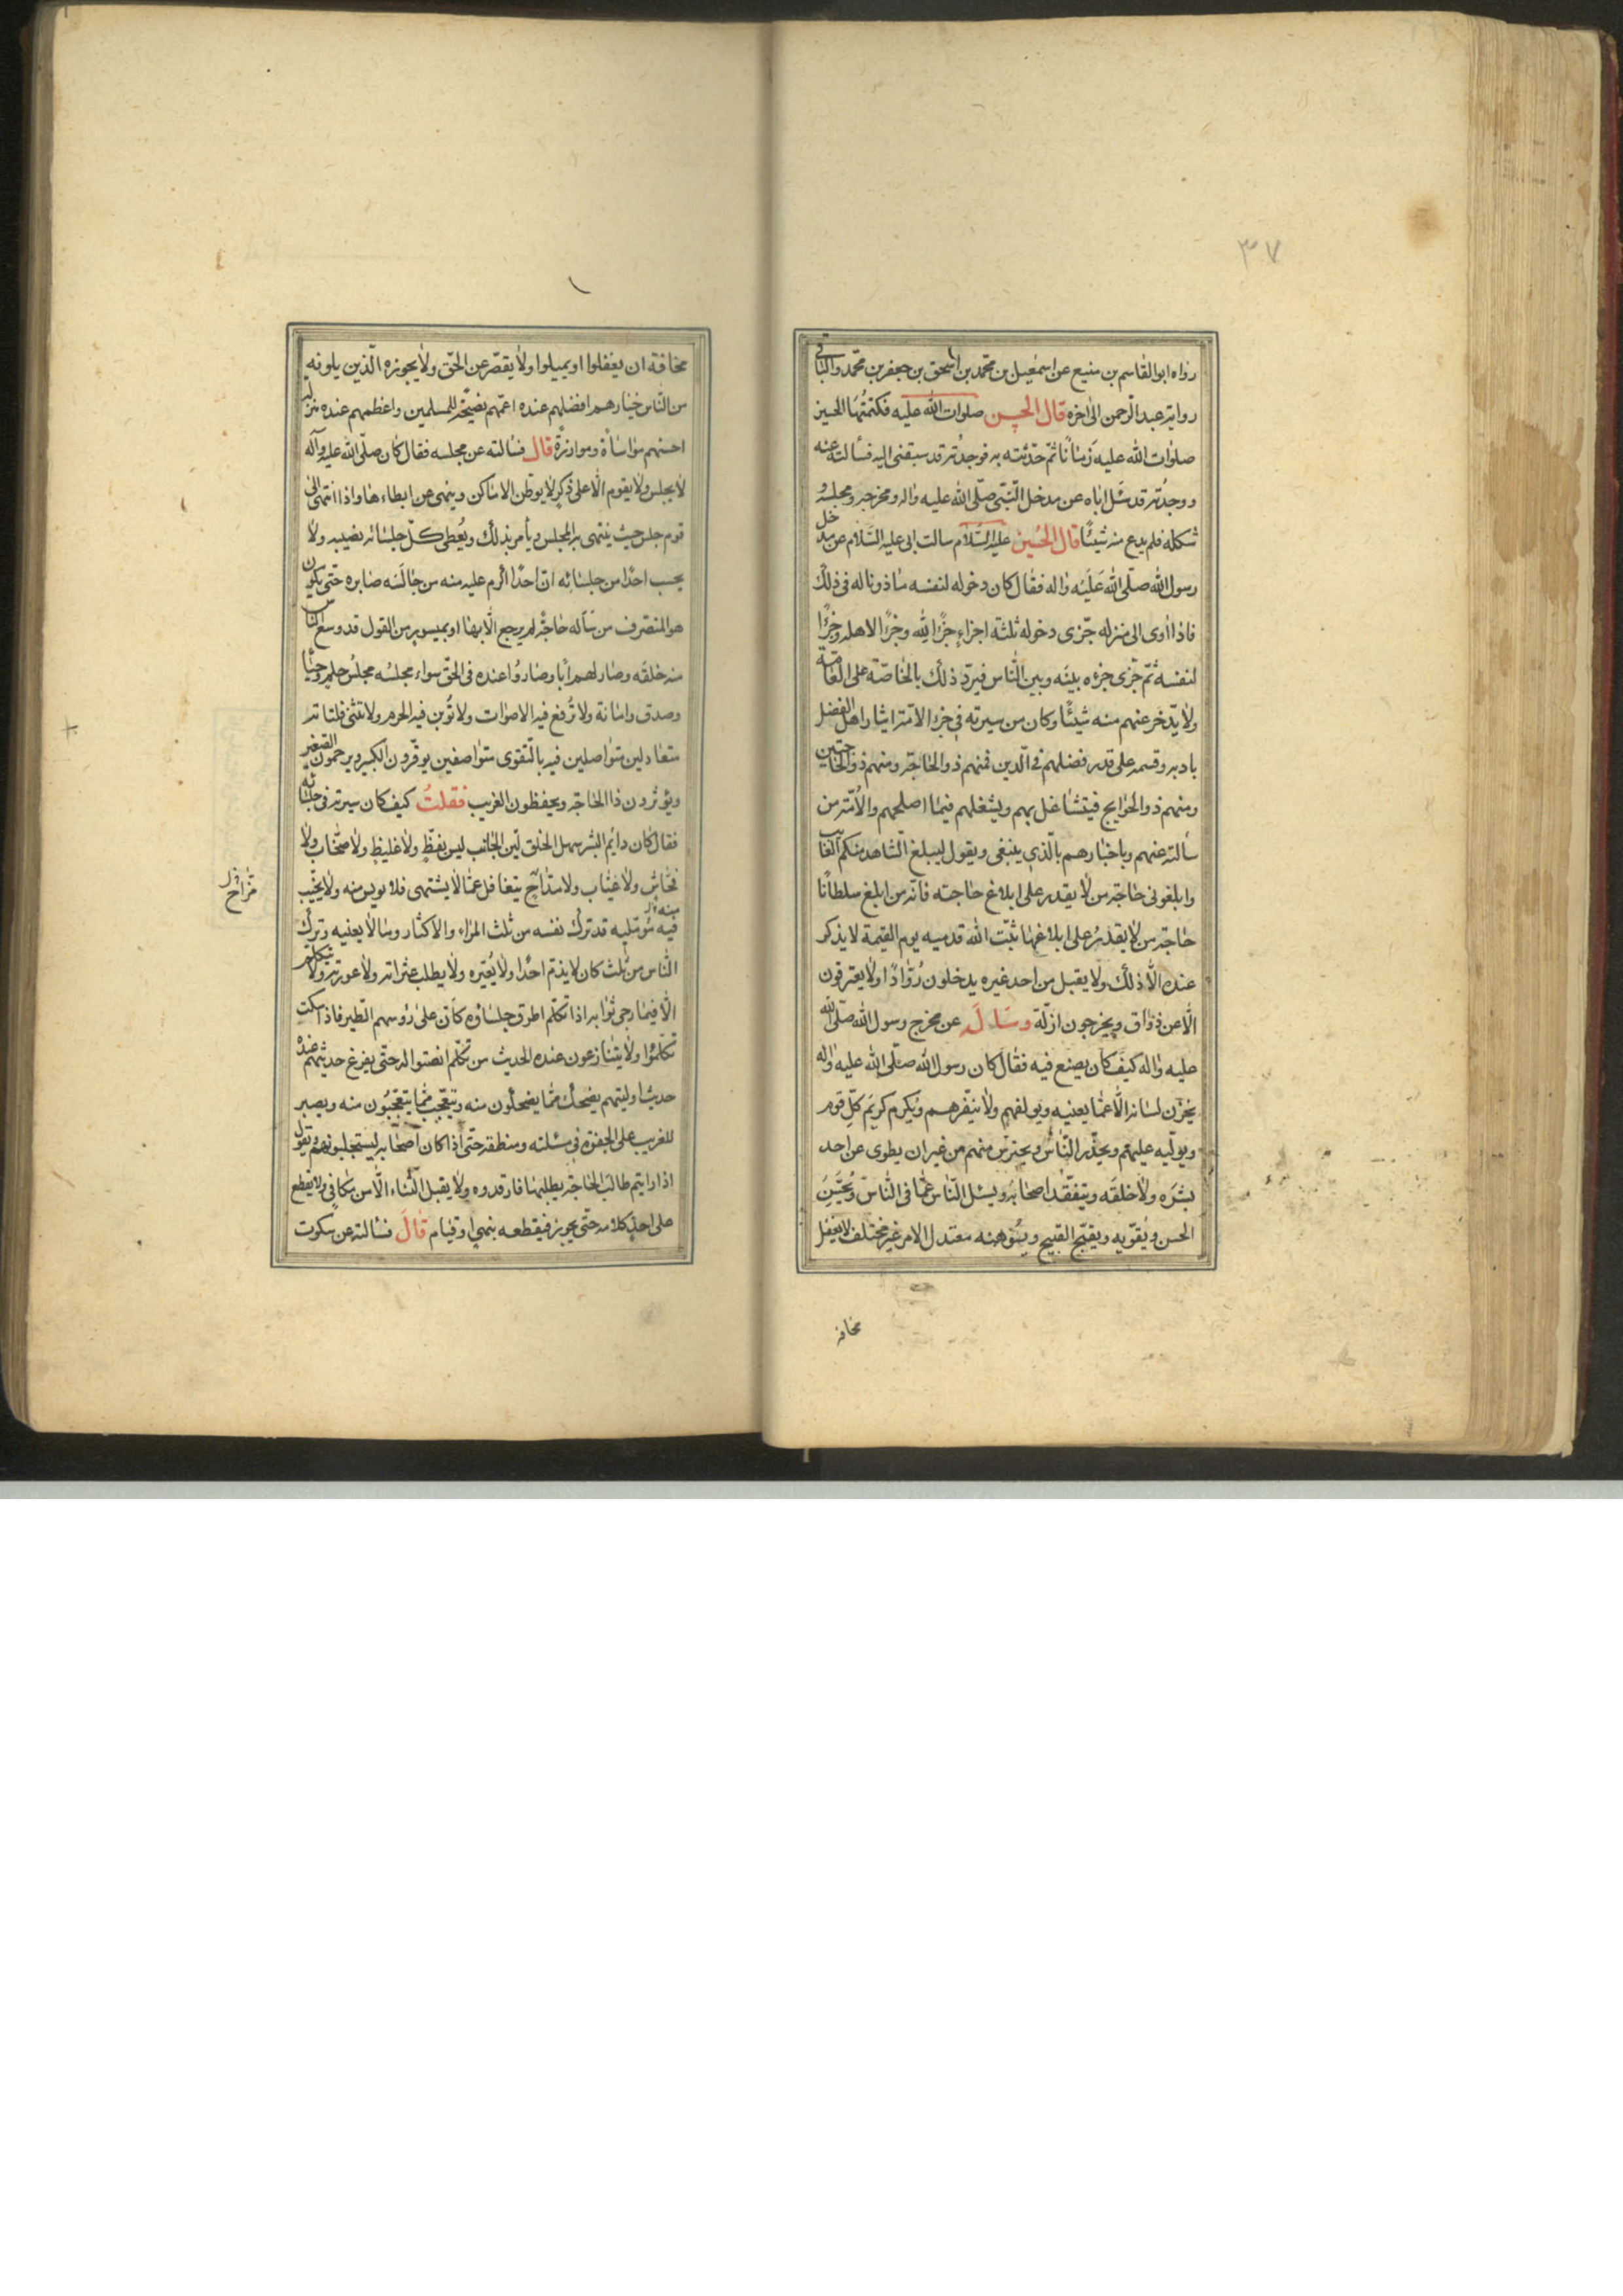 ٣٧
رواه ابوالقاسم بن منيع عن اسمعيل بن محمّد بن اسحق بن جعفر بن محمّد والباقى
رواية عبد الرحمن الى اخره قال الحسن صلوات الله عليه فكتمتُها الحسين
صلوات الله عليه زمانًا ثمّ حدّثته به فوجدُته قد سبقنى اليه فسألته عنه
ووجدُته قد سئل اباه عن مدخل النّبىّ صلّى الله عليه واله ومخرجه ومجلسه و
شكله فلم يدع منه شيئًا قال الحُسين عليه السّلام سالت ابى عليه السّلام عن مدخل
رسول الله صلّى الله عَلَيْه واله فقال كان دخوله لنفسه ماذونا له فى ذلك
فاذا اوى الى منزله جزّى دخوله ثلثة اجزاءٍ جزًا لِلّه وجزًا لاهله وجزًا
لنفسه ثمّ جزّى جزءه بينَه وبين النّاس فيردّ ذلك بالخاصّة على العامّة
ولا يدّخر عنهم منه شيئًا وكان من سيرته فى جزء الامّة ايثار اهل الفضل
بادبه وقسمه على قدر فضلهم فى الدّين فمنهم ذو الحاجة ومنهم ذو الحاجتين
ومنهم ذو الحوايج فيتشاغل بهم ويشغلهم فيما اصلحهم والاُمّة من
سألته عنهم وباخبارهم بالّذى ينبغى ويقول ليبلغ الشّاهد منكم الغايب
وابلغونى حاجة من لا يقدر على ابلاغ حاجته فانّه من ابلغ سلطانًا
حاجة من لا يقدرُ على ابلاغها ثبّت الله قدميه يوم القيمة لا يذكر
عنده الّا ذلك ولا يقبل من احد غيره يدخلون رُوّادًا ولا يفترقون
الّا عن ذواق ويخرجون ادلّة وسَالَه عن مخرج رسول الله صلّى الله
عليه واله كيف كان يصنع فيه فقال كان رسول الله صلّى الله عليه واله
يخزن لسانه الّا عمّا يعنيه ويولفهم ولا ينفّرهم ويُكرم كريَم كلّ قوم
ويولّيه عليهم ويحذّر النّاس ويحترس منهم من غير ان يطوى عن احد
بشرَه ولا خلقَه ويتفقّد اصحابَه ويسئل النّاس عمّا فى النّاس ويُحسّن
الحسن ويُقوّيه ويقبّح القبيح ويُوهنه معتدل الامر غير مختلف لا يغفل
مخافة
مخافة ان يغفلوا او يميلوا ولا يقصّر عن الحقّ ولا يجوزه الّذين يلونه
من النّاس خيارهم افضلهم عنده اعمّهم نصيحًة للمسلمين واعظمهم عنده منزلة
احسنهم مواساًة وموازرةً قال فسالته عن مجلسه فقال كان صلّى الله عليه وآله
لا يجلس ولا يقوم الّا على ذكرٍ لا يوطن الاماكن وينهى عن ايطاءها واذا انتهى الى
قوم جلس حيث ينتهى به المجلس ويأمر بذلك ويُعطى كلّ جلسائه نصيبه ولا
يحسب احدًا من جلسائه انّ احدًا اكرم عليه منه من جالَسَه صابره حتّى يكون
هو المنصرف من سَأله حاجًة لم يرجع الّا بها او بميسورٍ من القول قد وسع النّاس
منه خلقَه وصار لهم اَبا وصاروُا عنده فى الحقّ سواء مجلسُه مجلسُ حلم وحيا
وصدق وامانة ولا تُرفع فيه الاصوات ولا تُوبن فيه الحرم ولا تنثى فلتاته
متعادلين متواصلين فيه بالتّقوى متواصفين يوقّرون الكبير ويرحمون الصّغير
ويؤثرون ذا الحاجة ويحفظون الغريب فقلتُ كيف كان سيرته فى جلسائه
فقال كان دائم البشر سهل الخلق ليّن الجانب ليس بفظٍّ ولا غليظٍ ولا صخّاب ولا
فحّاش ولا عيّاب ولا مدّاحٍ يتغافل عمّا لا يشتهى فلا يويس منه ولا يخيّب
منه
فيه مُومّليه قد ترك نفسه من ثلث المراء والاكثار وما لا يعنيه وترك
النّاس من ثلث كان لا يذمّ احدًا ولا يُعيّره ولا يطلب عثراته ولا عورته ولا يتكلّم
الّا فيما رجى ثوابه اذا تكلّم اطرق جلساؤه كانّ على رؤسهم الطّير فاذا سكت
تكلّموُا ولا يتنازعون عنده الحديث من تكلّم انصتوا له حتّى يفرغ حديثهم عنده
حديث اوليتهم يضحك ممّا يضحكون منه ويتعجّب ممّا يتعجّبُون منه ويصبر
للغريب على الجفوة فى مسئلته ومنطقه حتّى اذا كان اصحابه ليستجلبونهم ويقول
اذا رايتم طالب الحاجة يطلبها فارفدوه ولا يقبل الثّناء الّا من مكافى ولا يقطع
على احدٍ كلامه حتّى يجوز فيقطعه بنهىٍ او قيام قالَ فسالته عن سكوت
مزاح